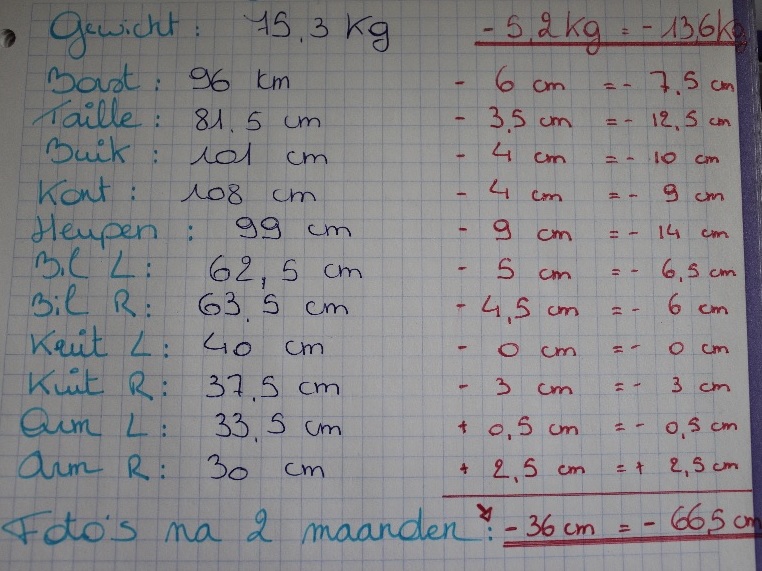 Gewicht : 75,3 kg - 5,2 kg = - 13,6 kg
Borst : 96 km - 6 cm = - 7,5 cm
Taille : 81,5 cm - 3,5 cm = - 12,5 cm
Buik : 101 cm - 4 cm = - 10 cm
Kont : 108 cm - 4 cm = - 9 cm
Heupen : 99 cm - 9 cm = - 14 cm
Bil L : 62,5 cm - 5 cm = - 6,5 cm
Bil R : 63,5 cm - 4,5 cm = - 6 cm
Kuit L : 40 cm - 0 cm = - 0 cm
Kuit R : 37,5 cm - 3 cm = - 3 cm
Arm L : 33,5 cm + 0,5 cm = - 0,5 cm
Arm R : 30 cm + 2,5 cm = + 2,5 cm
Foto's na 2 maanden : - 36 cm = - 66,5 cm